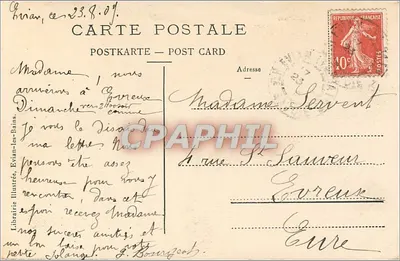 Evian, ce 23.8.07
CARTE POSTALE
POSTKARTE — POST CARD
Madame, nous
arriverons à Evreux
Dimanche
comme
je vous le disais
ma lettre
pensons être assez
heureuse pour vous y
rencontrer, dans cet
espoir recevez Madame
nos sincères amitiés et
un bon baiser pour votre
petite Solange. J. Bourgeois
Adresse
Madame Servent
4 rue St Sauveur
Evreux
Eure
RÉPUBLIQUE FRANÇAISE
10c
POSTES
CPARAMA
Librairie Illustrée, Evian-les-Bains.